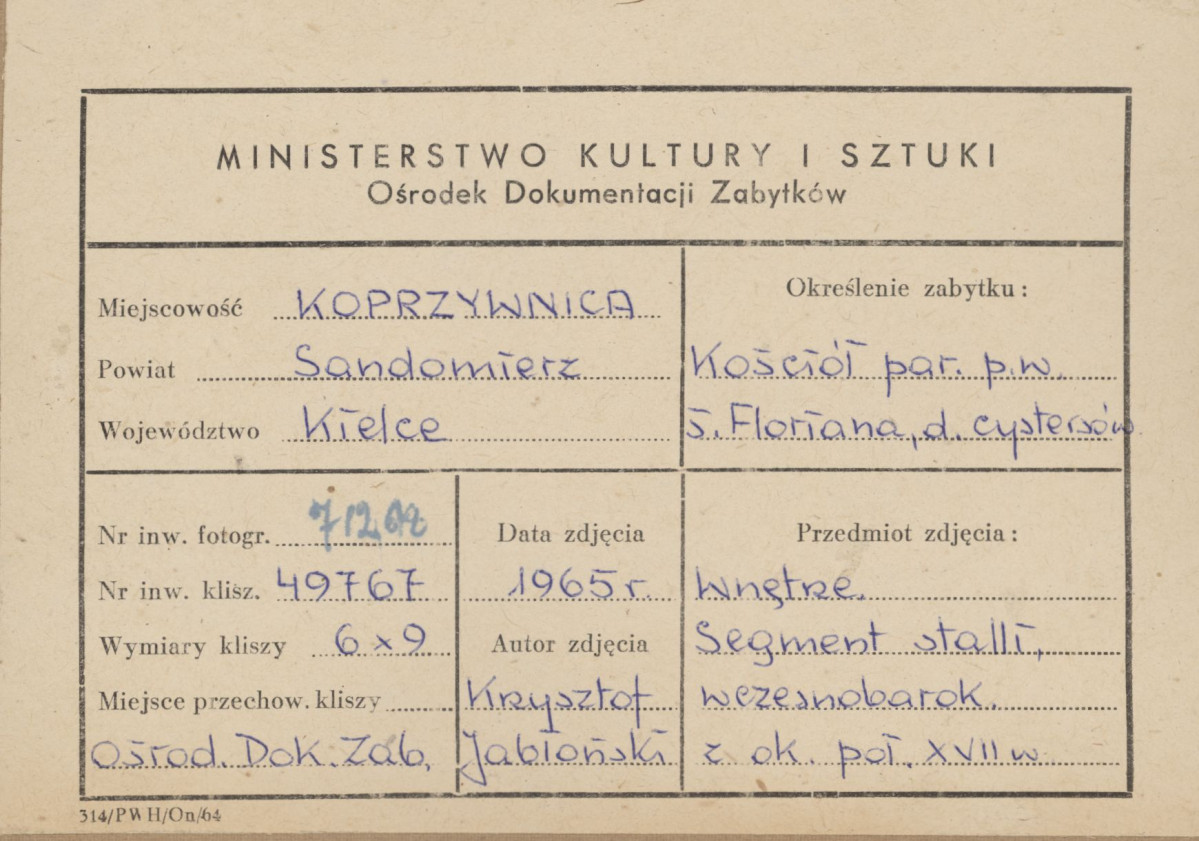 MINISTERSTWO KULTURY I SZTUKI
Ośrodek Dokumentacji Zabytków
Miejscowość KOPRZYWNICA
Powiat Sandomierz
Województwo Kielce
Określenie zabytku:
Kościół par. p.w.
ś. Floriana, d. cystersów
Nr inw. fotogr.
Nr inw. klisz. 49767
Wymiary kliszy 6 x 9
Miejsce przechow. kliszy
Ośrod. Dok. Zab.
Data zdjęcia
1965 r.
Autor zdjęcia
Krzysztof
Jabłoński
Przedmiot zdjęcia:
Wnętrze.
Segment stalli,
wczesnobarok.
z ok. poł. XVII w
314/PWH/On/64